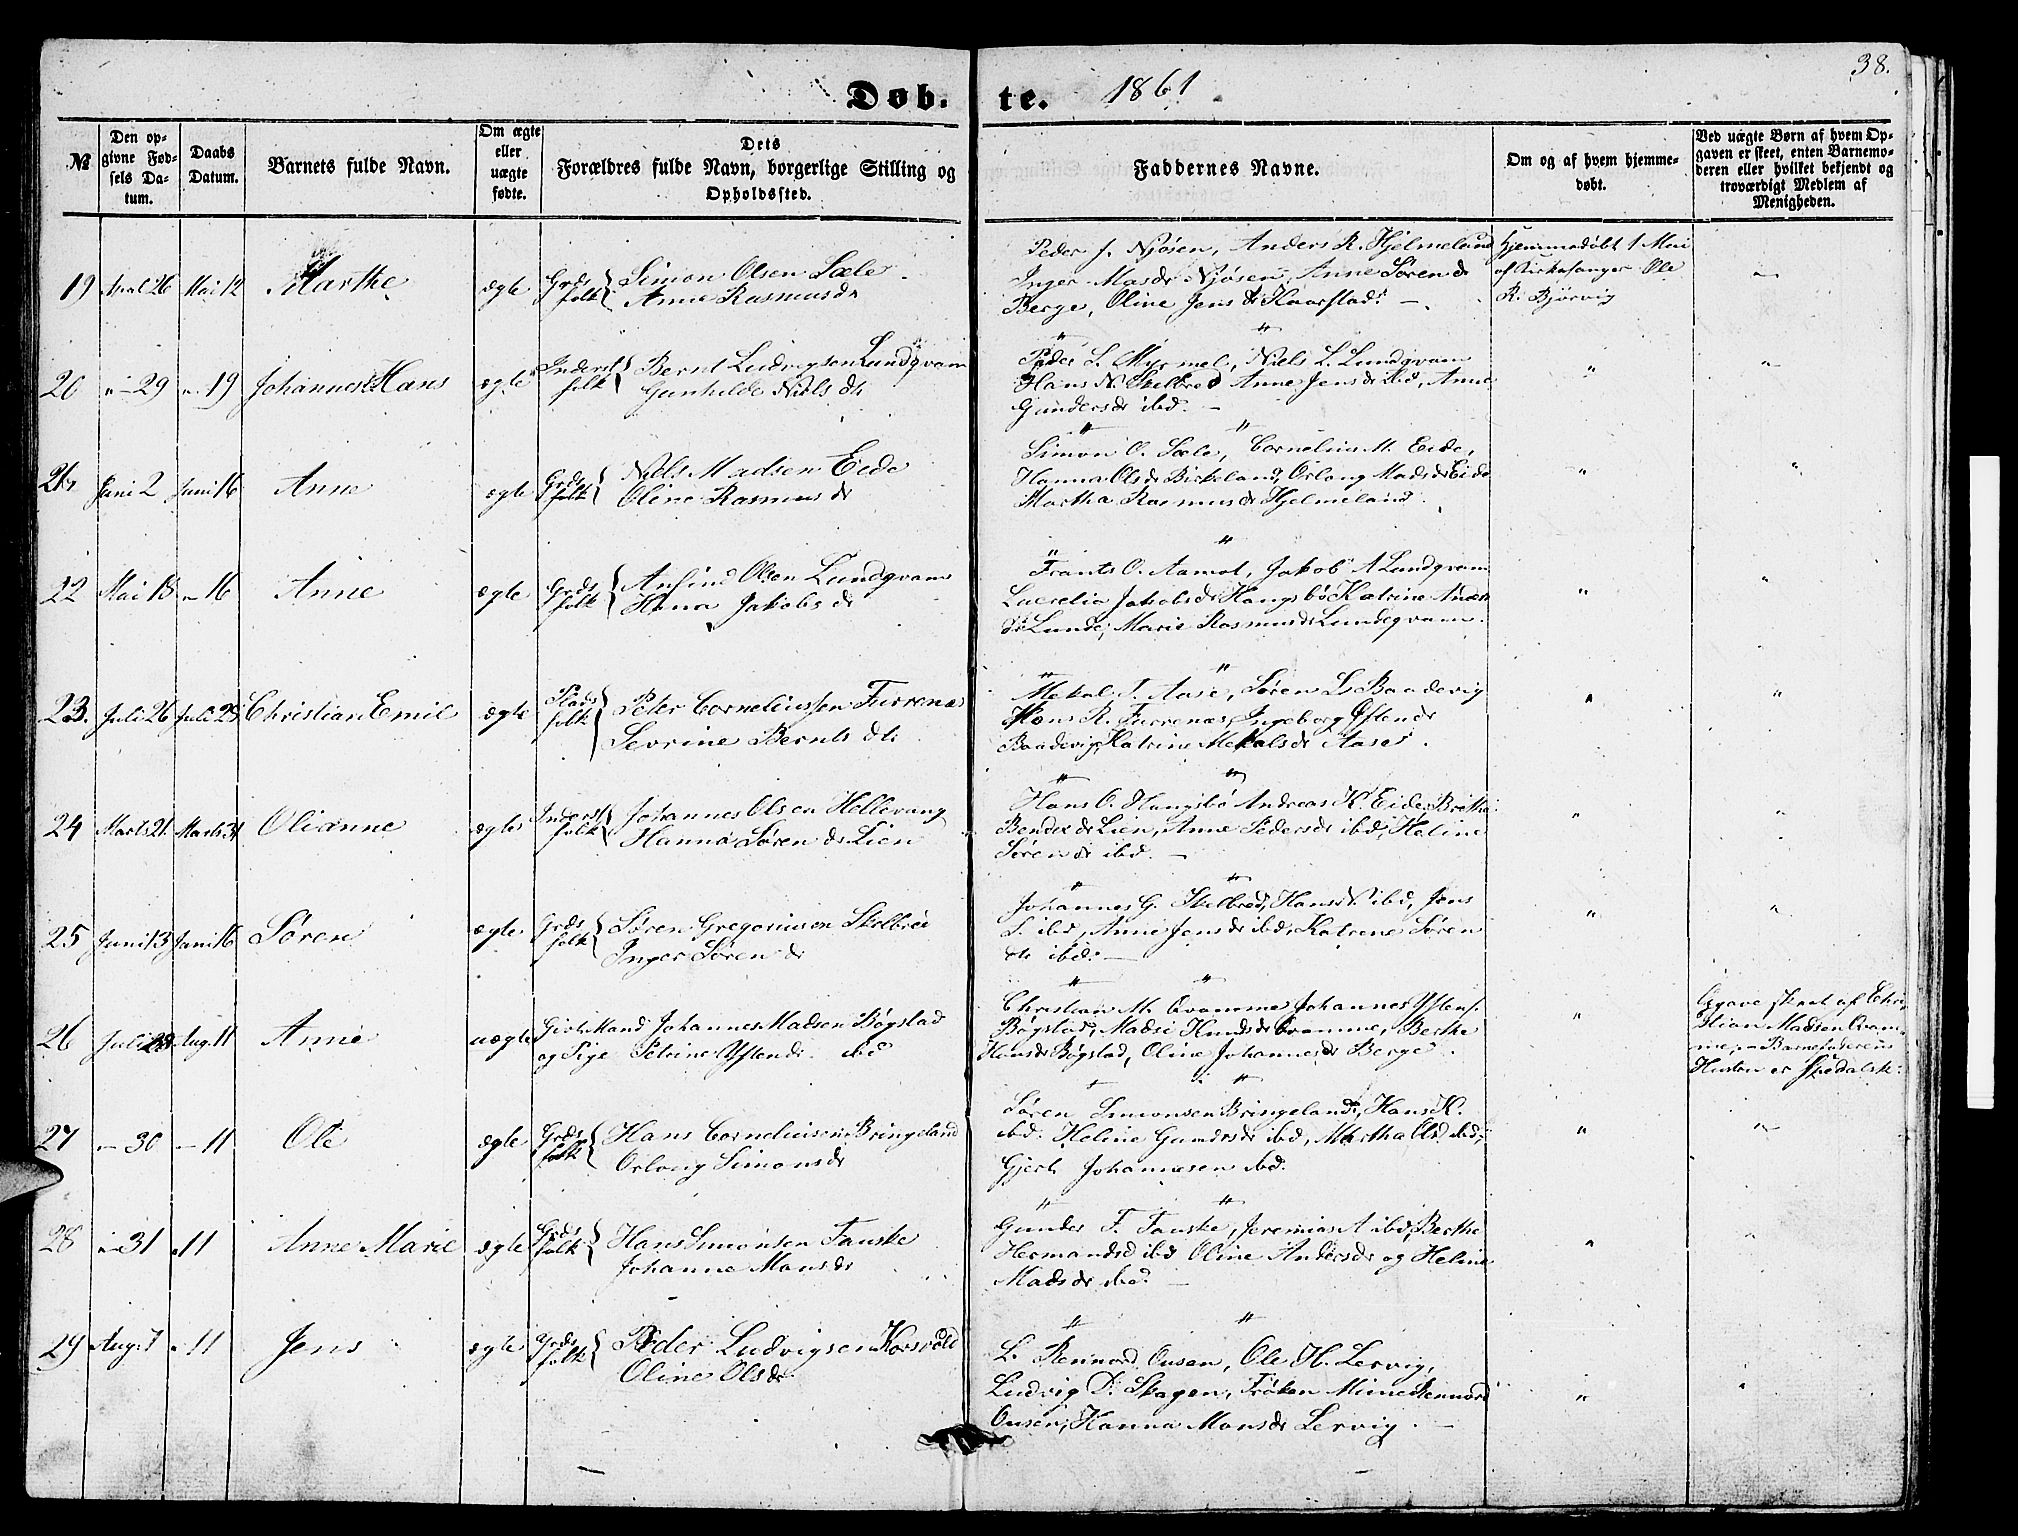 38.
Døb- te. 1861
№
Den op-
givne Fød-
sels Da-
tum.
Daabs
Datum.
Barnets fulde Navn.
Om ægte
eller
uægte
fødte.
Dets
Forældres fulde Navn, borgerlige Stilling og
Opholdssted.
Faddernes Navne.
Om og af hvem hjemme-
døbt.
Ved uægte Børn af hvem Op-
gaven er skeet, enten Barnemo-
deren eller hvilket bekjendt og
troværdigt Medlem af
Menigheden.
19 April 26 Mai 12 Marthe ægte Grds folk
Simon Olsen Sæle
Anne Rasmusdr
Peder J. Njøsen, Anders R. Hjelmeland
Inger Masdr Njøsen, Anne Sørendr
Berge, Oline Jensdr Kaarstad. —
Hjemmedøbt 1 Mai
af Kirkesanger Ole
R. Bjørvig
20 " 29 " 19 Johannes Hans ægte Inderst folk
Bernt Ludvigsen Lundqvam
Gunhilde Niels dtr
Peder L. Myrmel, Niels L. Lundqvam
Hans N. Skelbred Anne Jensdr ibd, Anne
Gundersdr ibd. —
21. Juni 2 Juni 16 Anne ægte Grds folk
Niels Madsen Eide
Oline Rasmusdr
Simon O. Sæle, Cornelius M. Eide,
Hanna Olsdr Birkeland, Orlong Madsdr Eide
Martha Rasmusdr Hjelmeland.
22 Mai 18 " 16 Anne ægte Grds folk
Anfind Olsen Lundqvam
Hana Jakobsdr
Frants O. Aamot, Jakob A Lundqvam
Lucrelia Jakobsdr Hangsbø Katrine Anders
dr Lunde, Marie Rasmusdr Lundeqvam.
23. Juli 26 Juli 28 Christian Emil ægte Plads folk
Peter Corneliussen Furrenæs
Sevrine Bernts dtr
Mekal T. Aase, Søren L. Baadevig
Hans R. Furrenæs, Ingeborg Østendr
Baadevig, Katrine Mekalsdr Aase.
24 Marts 21. Marts 31 Olianne ægte Inderst folk
Johannes Olsen Hellevang
Hanna Sørendr Lien
Hans O. Hangsbø Andreas K. Eide, Brithe
Bendixdr Lien, Anne Pedersdr ibd, Heline
Sørendr ibd. —
25 Juni 13 Juni 16 Søren ægte Grds folk
Søren Gregoriusen Skelbrei
Inger Sørendr
Johannes G. Skelbred, Hans N. ibd, Jens
S. ibd, Anne Jensdr ibd, Katrine Søren
dtr ibd. —
26 Juli 28. Aug. 11 Anne uægte
Givt Mand Johannes Madsen Bøgstad
og Pige Petrine Ystendr ibd
Christian M. Qvamme, Johannes Ystens.
Bøgstad, Madsi Knudsdr Qvamme, Berthe
Hansdr Bøgstad, Oline Johannesdr Berge.
Opgave skeet af Chri-
stian Madsen Qvam-
me, — Barnefaderens
Hustru er Spedalsk.
27 " 30 " 11 Ole ægte Grds folk
Hans Corneliusen Bringeland
Orlong Simonsdr
Søren Simonsen Bringeland, Hans K.
ibd. Heline Gundersdr ibd, Martha Olsd ibd,
Gjert Johannesen ibd.
28 " 31 " 11 Anne Marie ægte Grds folk
Hans Simonsen Fauske
Johanne Monsdr
Gunder F. Fauske, Jeremias A ibd, Berthe
Hermandsd ibd Oline Andersdr og Heline
Madsdr ibd. —
29 Aug. 7 " 11 Jens ægte Grds folk
Peder Ludvigsen Korsvold
Oline Olsdr
L. Rennord Ousen, Ole H. Lervig,
Ludvig P. Skagen, Frøken Mime Rennord
Ousen, Hanna Monsdr Lervig. —